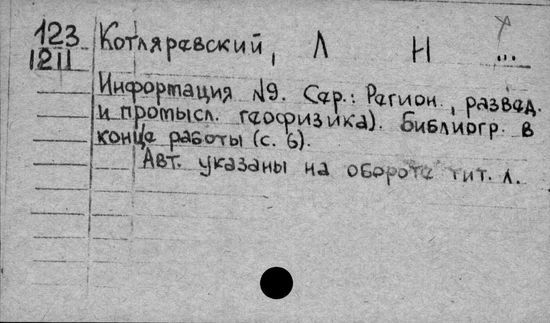 123 Котляревский, Л Н ...
1211
Информация №9. Сер.: Регион., развед.
и промысл. геофизика). Библиогр. в
конце работы (с. 6).
Авт. указаны на обороте тит. л.